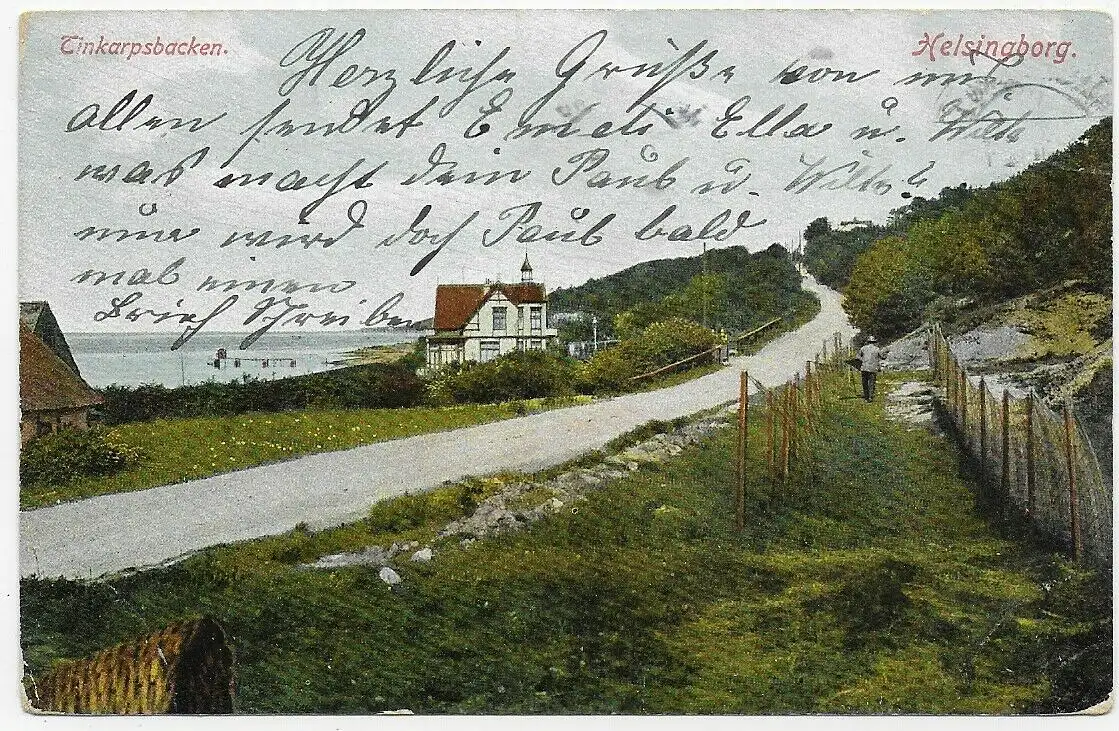 Tinkarpsbacken.
Helsingborg.
Herzliche Grüße von uns
allen sendet Emeli Ella u. Willi
was macht dein Paul u. Willi?
nun wird doch Paul bald
mal einen
Brief Schreiben